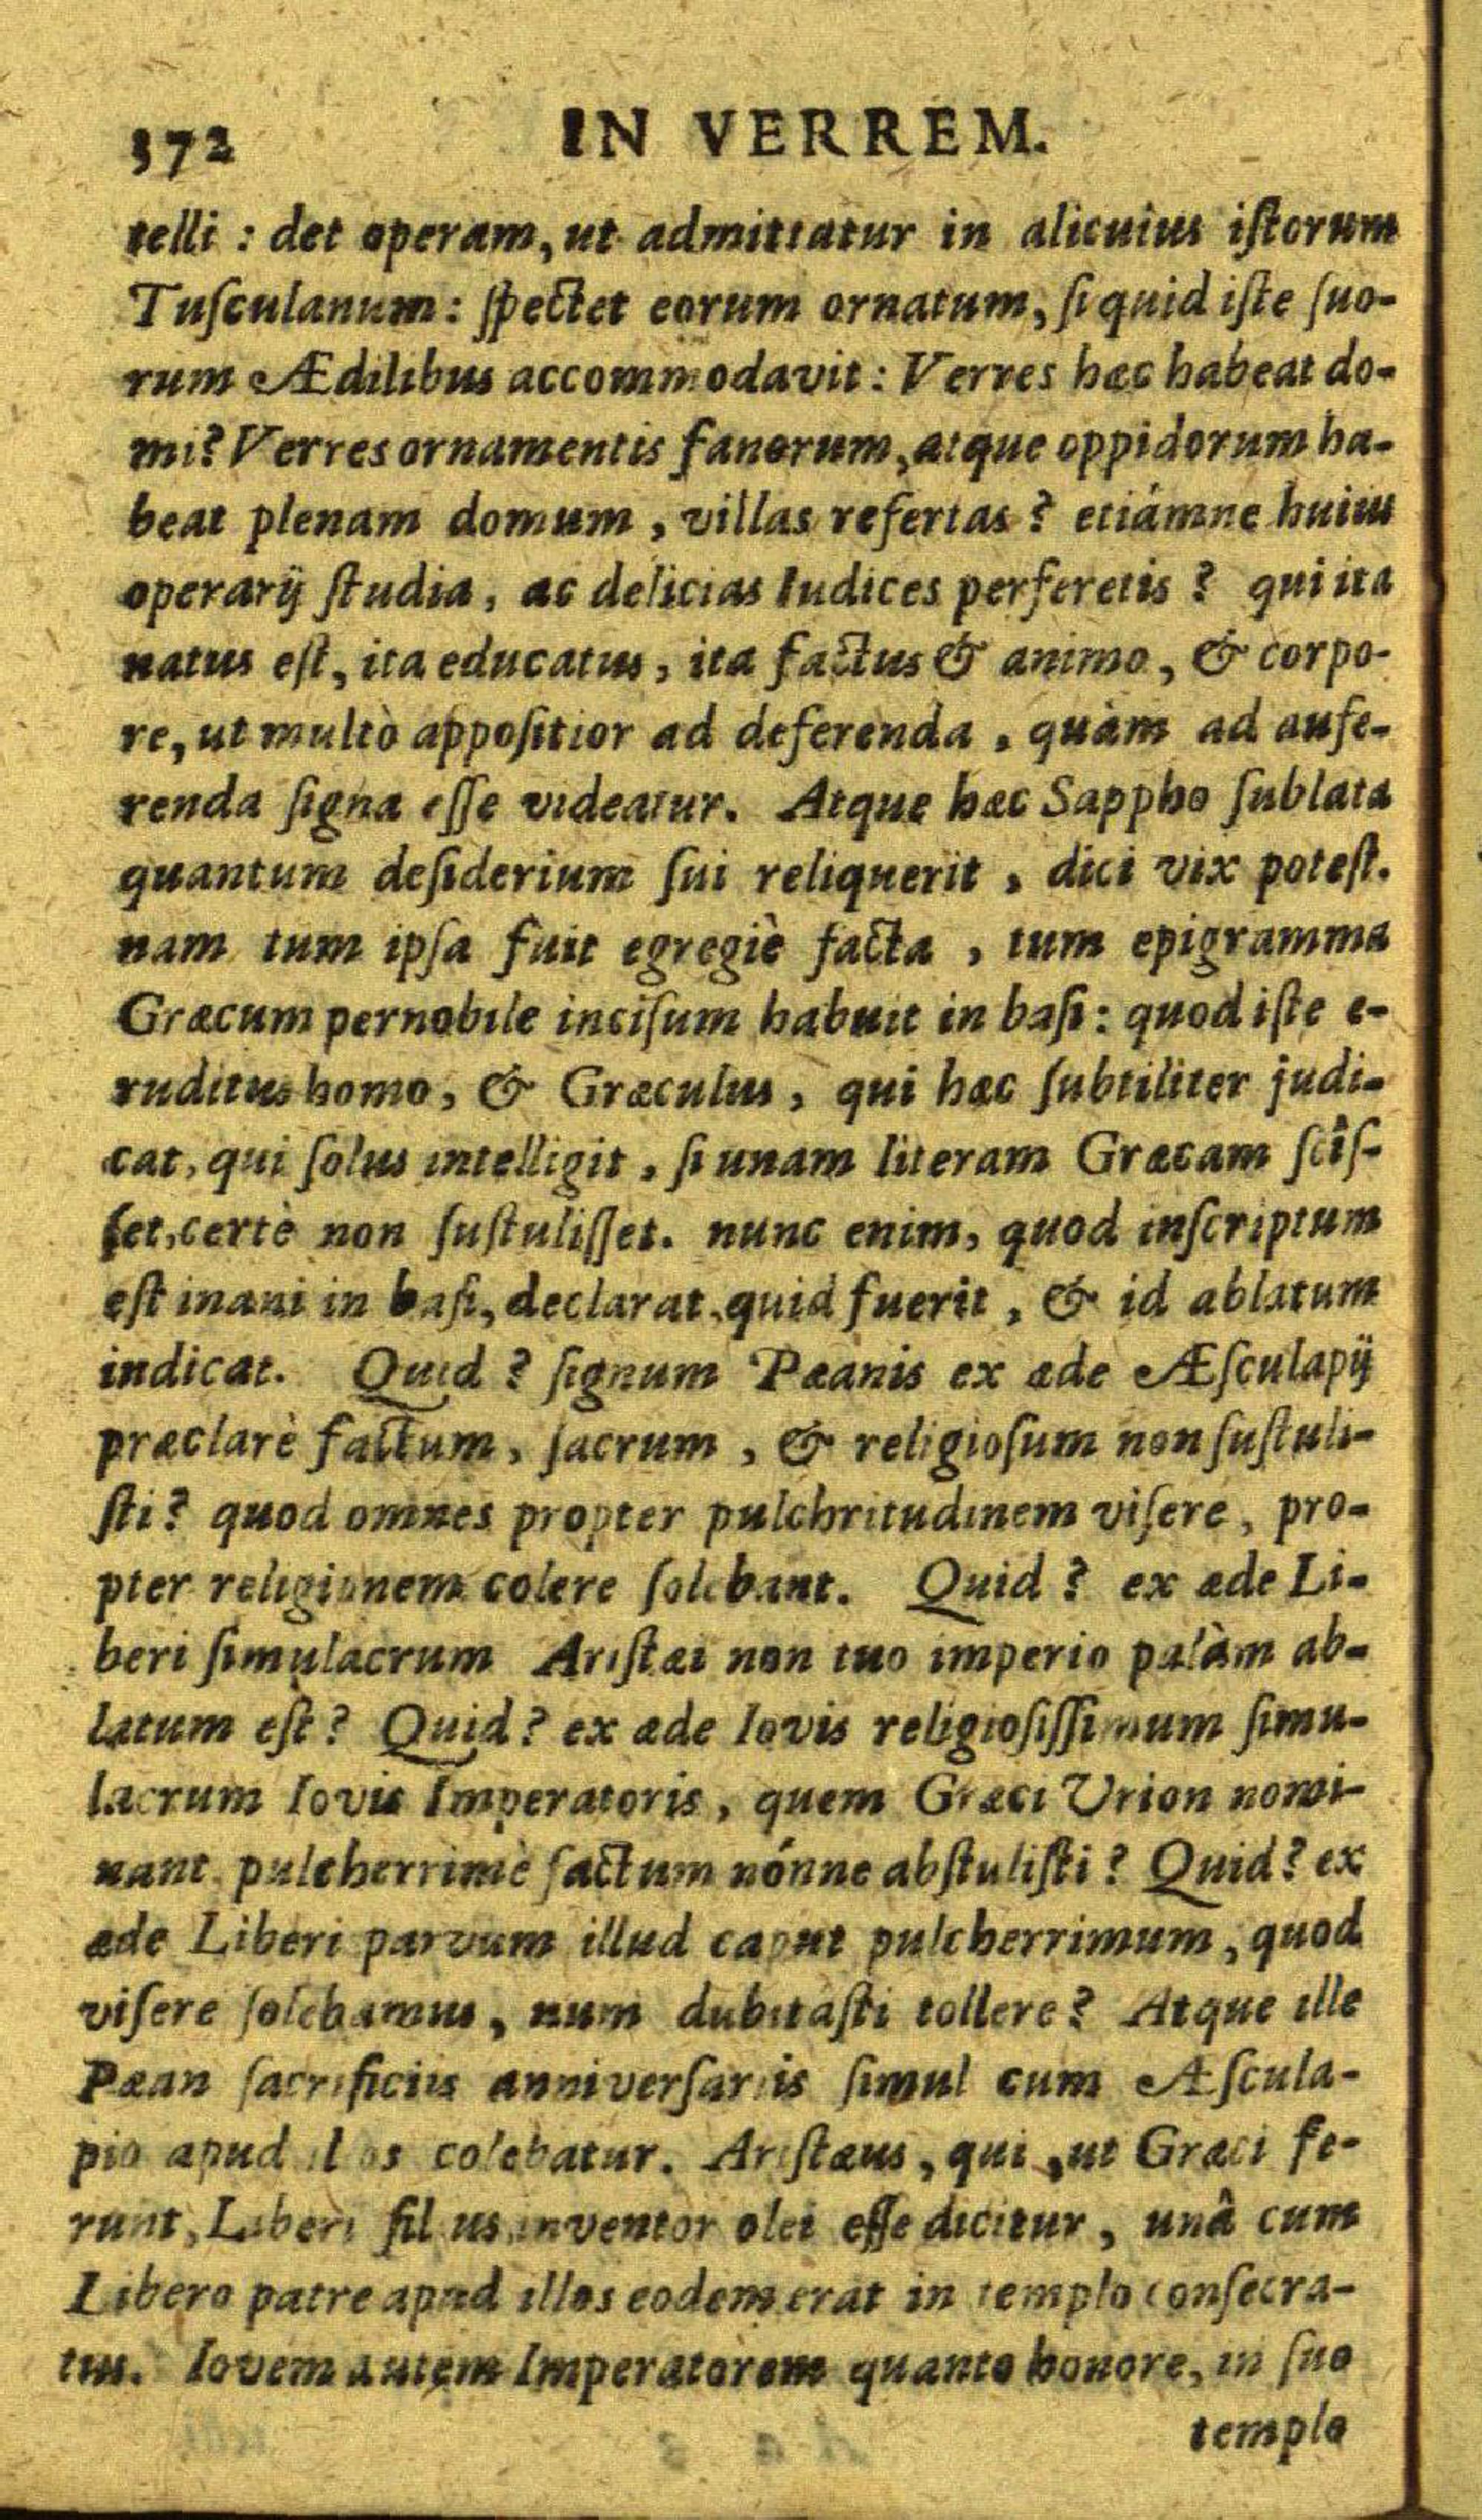 372 IN VERREM.
telli : det operam, ut admittatur in alicuius iſtorum
Tuſculanum : ſpectet eorum ornatum, ſi quid iſte ſuo-
rum Ædilibus accommodavit : Verres hæc habeat do-
mi? Verres ornamentis fanorum, atque oppidorum ha-
beat plenam domum, villas refertas? etiámne huius
operarij ſtudia, ac delicias Iudices perferetis? qui ita
natus eſt, ita educatus, ita factus & animo, & corpo-
re, ut multò appoſitior ad deferenda, quàm ad aufe-
renda ſigna eſſe videatur. Atque hæc Sappho ſublata
quantum deſiderium ſui reliquerit, dici vix poteſt.
nam tum ipſa fuit egregiè facta, tum epigramma
Græcum pernobile inciſum habuit in baſi : quod iſte e-
ruditus homo, & Græculus, qui hæc ſubtiliter judi-
cat, qui ſolus intelligit, ſi unam literam Græcam ſciſ-
ſet, certè non ſuſtuliſſet. nunc enim, quod inſcriptum
eſt inani in baſi, declarat, quid fuerit, & id ablatum
indicat. Quid? ſignum Pæanis ex æde Æſculapij
præclarè factum, ſacrum, & religioſum non ſuſtuli-
ſti? quod omnes propter pulchritudinem viſere, pro-
pter religionem colere ſolebant. Quid? ex æde Li-
beri ſimulacrum Ariſtæi non tuo imperio palàm ab-
latum eſt? Quid? ex æde Iovis religioſiſſimum ſimu-
lacrum Iovis Imperatoris, quem Græci Urion nomi-
nant, pulcherrimè factum nónne abſtuliſti? Quid? ex
æde Liberi parvum illud caput pulcherrimum, quod
viſere ſolebamus, num dubitaſti tollere? Atque ille
Pæan ſacrificiis anniverſariis ſimul cum Æſcula-
pio apud illos colebatur. Ariſtæus, qui, ut Græci fe-
runt, Liberi filius inventor olei eſſe dicitur, unâ cum
Libero patre apud illos eodem erat in templo conſecra-
tus. Iovem autem Imperatorem quanto honore, in ſuo
templo